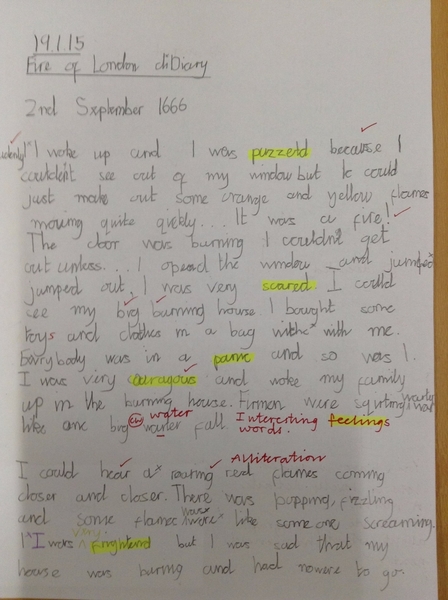 19.1.15
Fire of London diDiary
2nd Sxptember 1666
I woke up and I was puzzeld because I
couldn't see out of my window but Ic could
just make out some orange and yellow flames
moving quite qickly... It was a fire!
The door was burning I couldn't get
out unless... I opend the window and jumped
jumped out, I was very scared I could
see my big burning house I bought some
toys and clothes in a bag with me.
Everybody was in a panic and so was I.
I was very couragous and woke my family
up in the burning house. Firman were sqirting
like one big water fall. Interesting feelings
water
cw
words.
Alliteration
I could hear a roaring red flames coming
closer and closer. There was popping, fizzling
and some flames were like someone screaming.
very
I was frightend but I was sad that my
house was buring and had nowere to go.